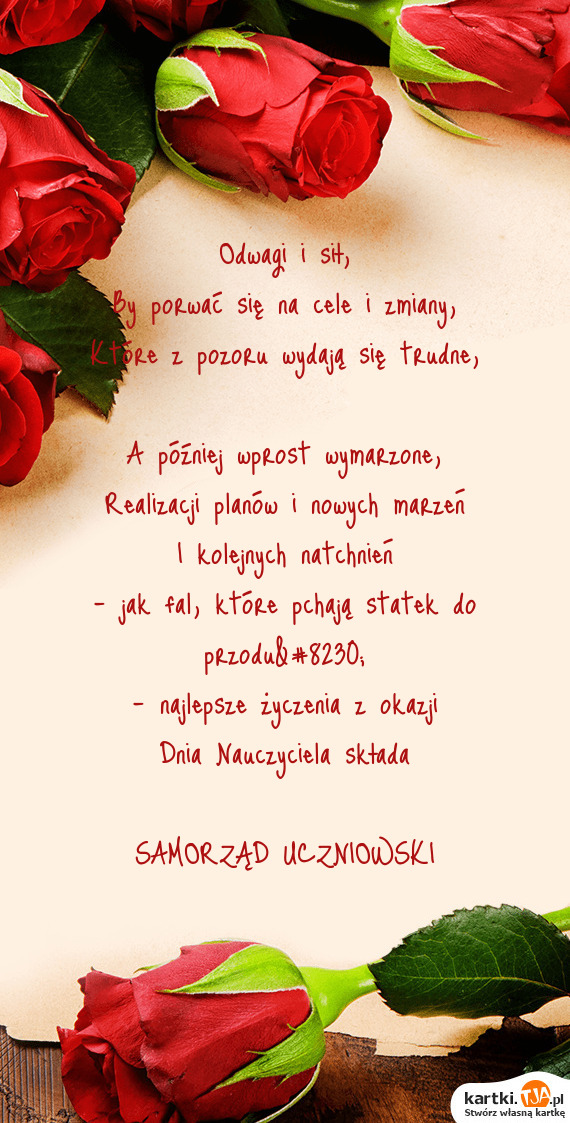 Odwagi i sił,
By porwać się na cele i zmiany,
Które z pozoru wydają się trudne,
A później wprost wymarzone,
Realizacji planów i nowych marzeń
I kolejnych natchnień
- jak fal, które pchają statek do
przodu&#8230;
- najlepsze życzenia z okazji
Dnia Nauczyciela składa
SAMORZĄD UCZNIOWSKI
kartki.TJA.pl
Stwórz własną kartkę